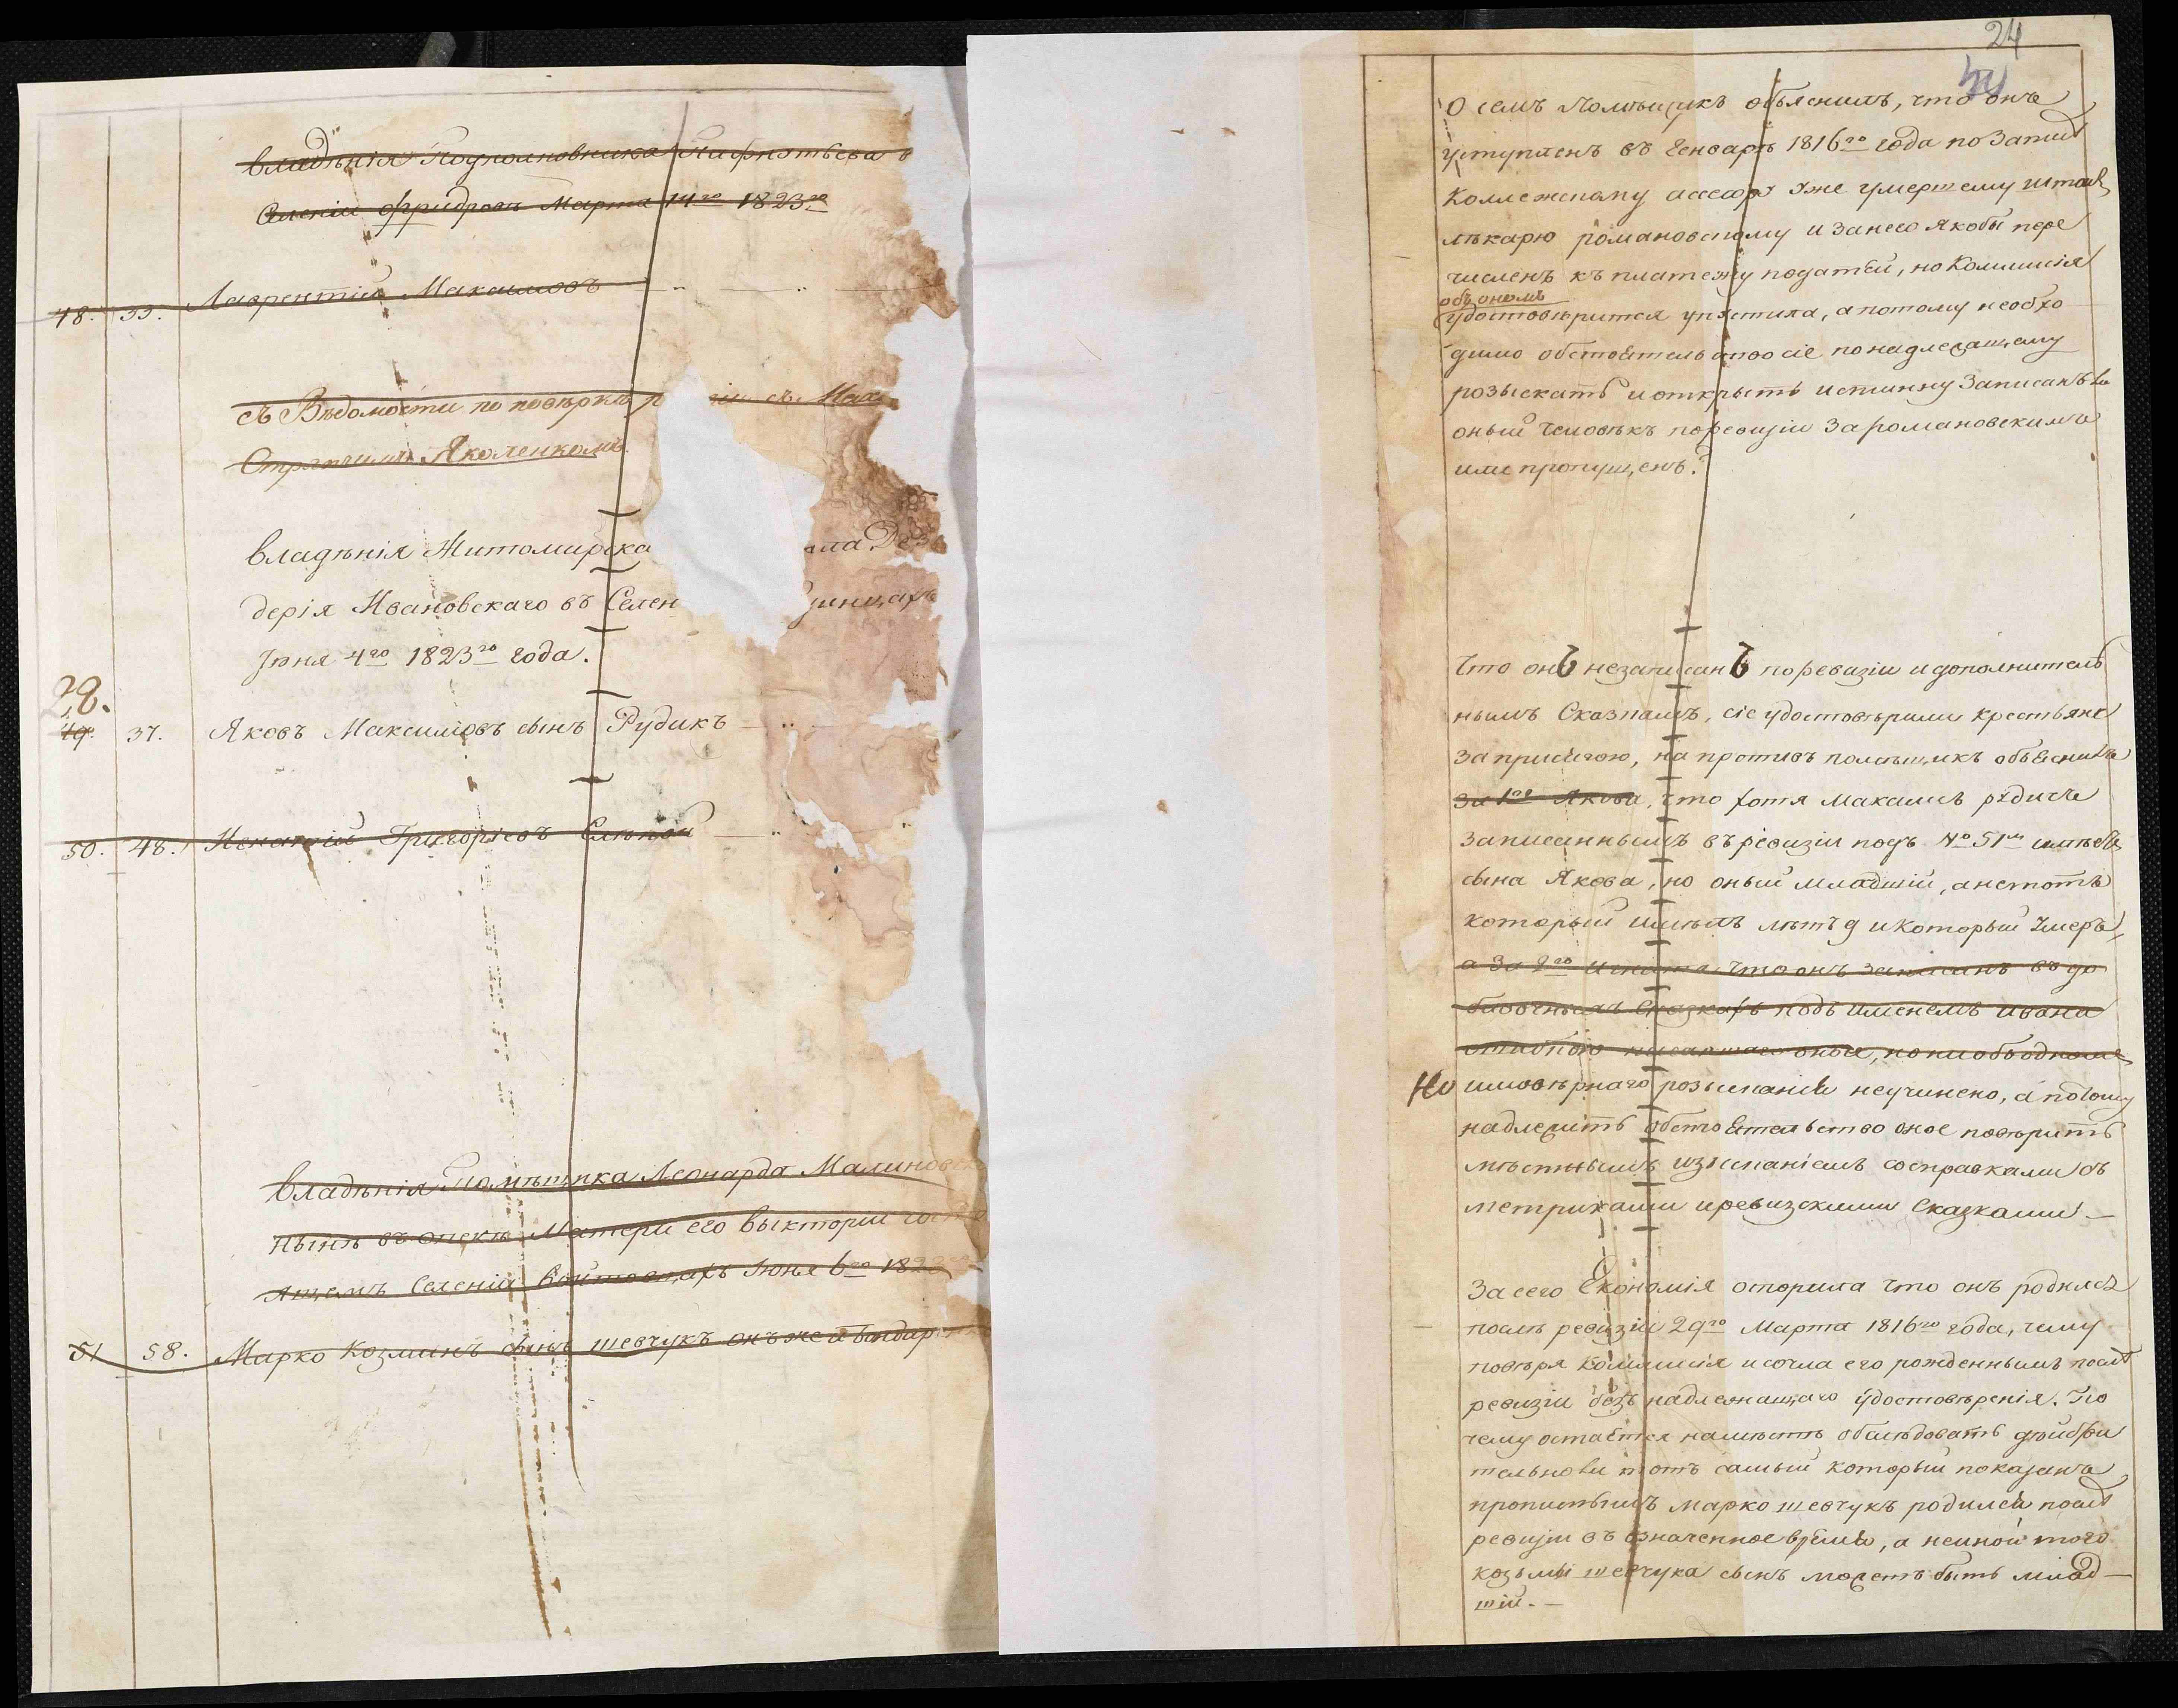 владѣнія Подполковника
Селеніи Фридровъ Марта 14го 1823го
48. 33. Лаврентій Максимовъ
съ Вѣдомости по повѣркѣ
Стряпчимъ Яколенкомъ.
владѣнія Житомирска
дерія Ивановскаго въ Селен
Іюня 4го 1823го года.
28.
49. 37. Яковъ Максимовъ сынъ Рудикъ
50. 48. Игнатій Григорьевъ
владѣнія Помѣщика Леонарда Малиновск
нынѣ въ опекѣ Матери его Викторіи
ящемъ Селеніи Войтовцахъ Іюня 6го 182
51 58. Марко Козминъ сынъ шевчукъ онъ же и бондар
24
О семъ Помѣщикъ объяснилъ, что онъ
уступленъ въ Генваре 1816го года по
Коллежскому ассесору уже умершему штаб
лѣкарю романовскому и за него якобы пере
численъ къ платежу податей, но Коммисія
объ ономъ
удостовѣрится упустила, а потому необхо
димо обстоятельство сіе по надлежащему
розыскать и открыть истинну Записанъ ли
оный человѣкъ по ревизіи За романовскимъ
или пропущенъ?
Что онъ незаписанъ по ревизіи и дополнитель
нымъ Сказкамъ, сіе удостовѣрили крестьяне
за присягою, на противъ помѣщикъ объяснилъ
за 1го Якова, что хотя Максимъ рудикъ
записанный въ ревизіи подъ No 51м имѣлъ
сына Якова, но оный младшій, а не тотъ
который имѣлъ лѣтъ 9 и который Умеръ,
а За 2го Игната что онъ записанъ въ до
бавочныхъ Сказкахъ подъ именемъ Ивана
ошибкою писавшаго оные, но ни объ одномъ
Но имовѣрнаго розысканія неучинено, а потому
надлежитъ обстоятельство оное повѣрить
мѣстнымъ изысканіемъ со справками съ
метриками и ревизскими Сказками —
За сего Економія оспорила что онъ родился
послѣ ревизіи 29го Марта 1816го года, чему
повѣря Коммисія и сочла его рожденнымъ послѣ
ревизіи безъ надлежащаго удостовѣренія. По
чему остается на мѣстѣ обслѣдовать дѣйстви
тельно ли тотъ самый который показанъ
прописнымъ Марко шевчукъ родился послѣ
ревизіи въ означенное время, а не иной того
козьмы шевчука сынъ можетъ быть млад
шій. —